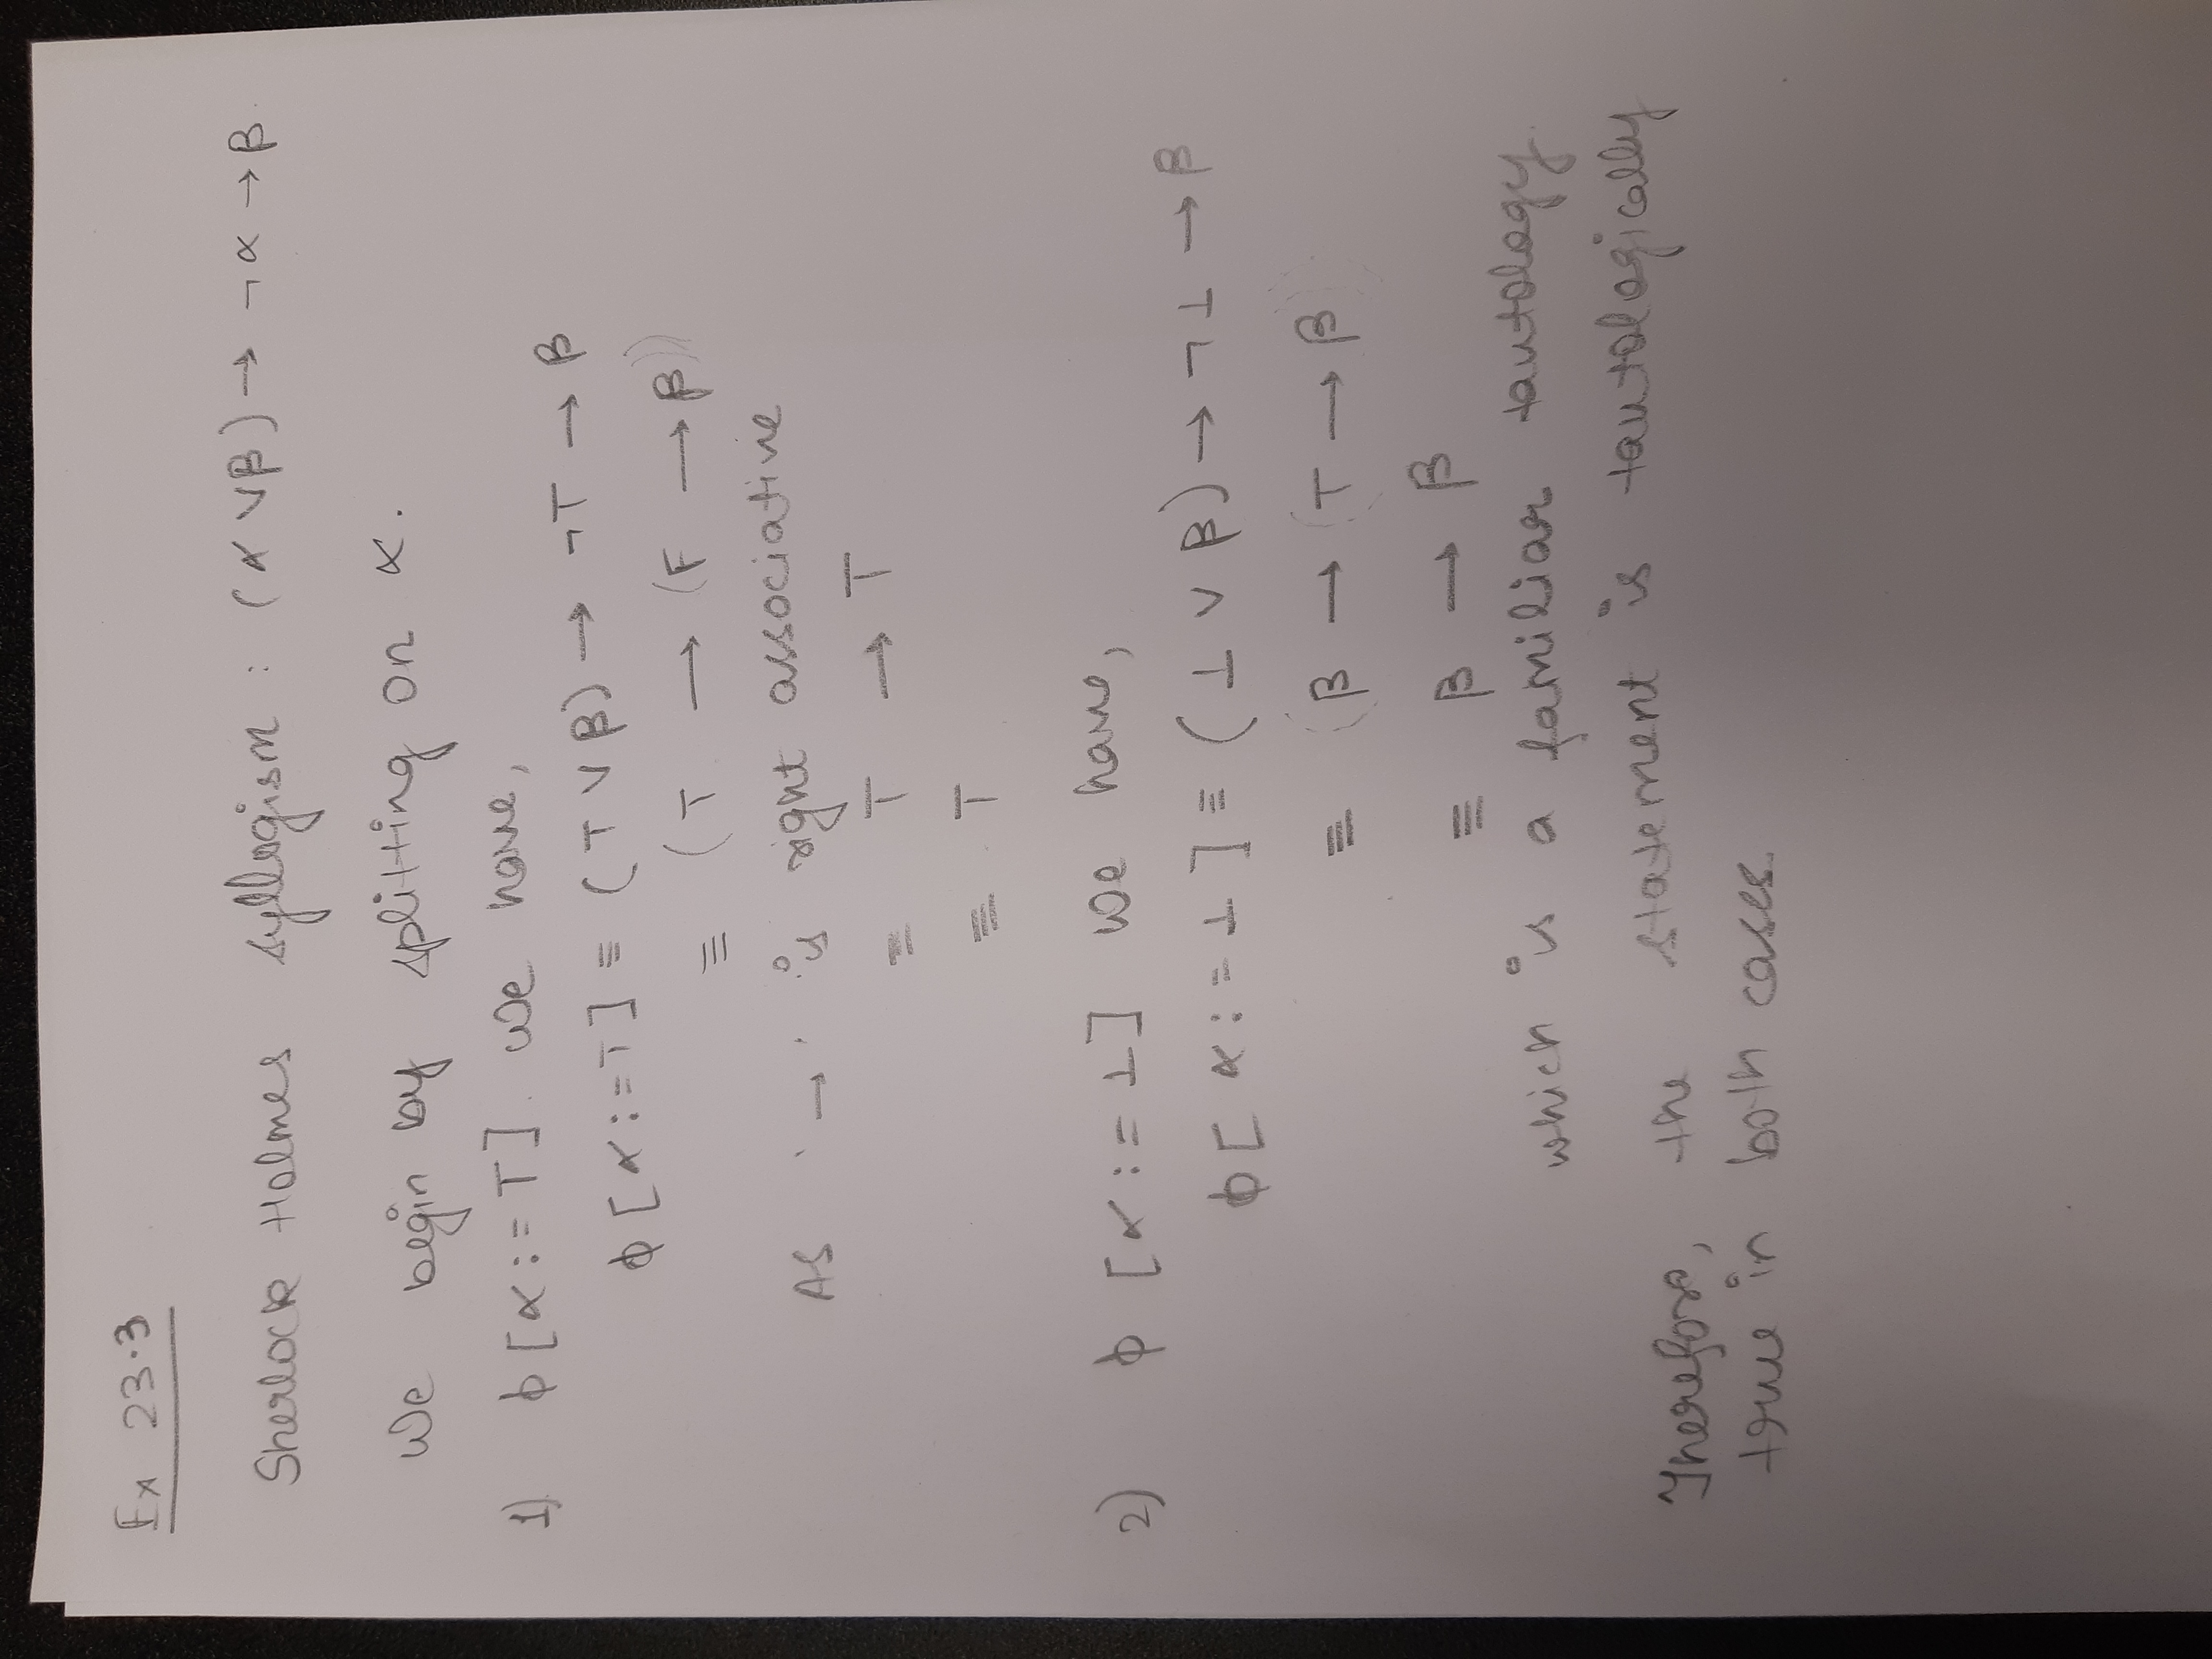 Ex 23.3
Sherlock Holmes syllogism : (α ∨ β) → ¬α → β.
We begin by splitting on α.
1) ϕ[α:=T]. We have,
ϕ[α:=T] ≡ (T ∨ β) → ¬T → β
≡ (T → (F → β))
As '→' is right associative
≡ T → T
≡ T
2) ϕ [α:=⊥] We have,
ϕ[α:=⊥] ≡ (⊥ ∨ β) → ¬⊥ → β
≡ (β → (T → β
≡ β → β
which is a familiar tautology.
Therefore, the statement is tautologically
true in both cases.